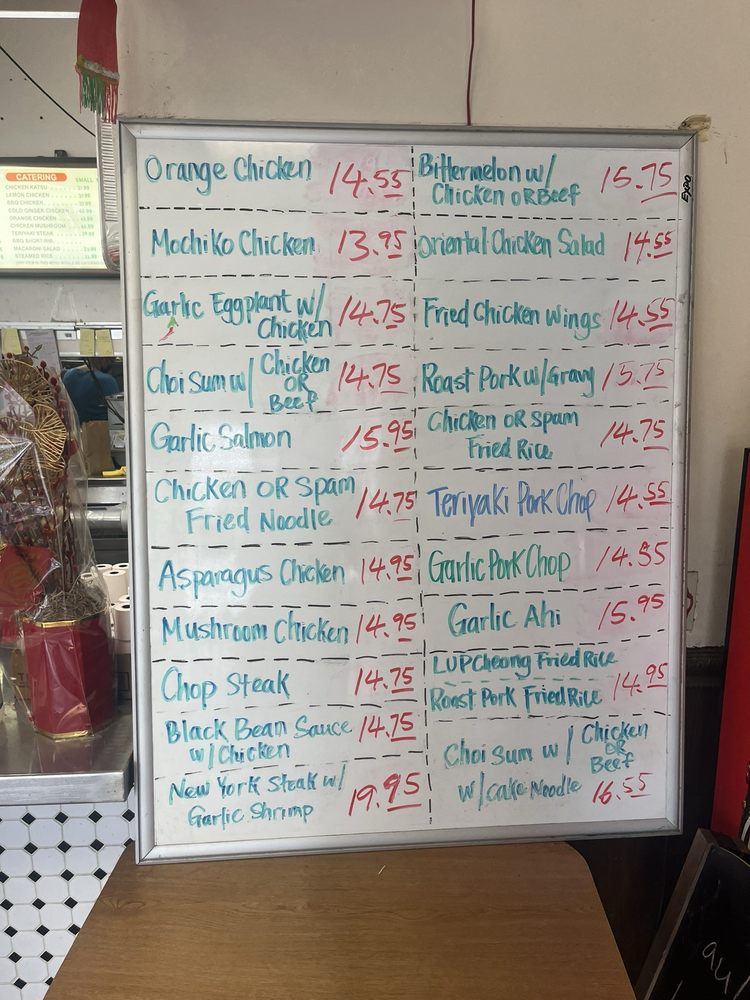 CATERING
SMALL
CHICKEN KATSU
LEMON CHICKEN
BBQ CHICKEN
COLD GINGER CHICKEN
ORANGE CHICKEN
CHICKEN MUSHROOM
TERIYAKI STEAK
BBQ SHORT RIB
MACARONI SALAD
STEAMED RICE
Orange Chicken 14.55
Mochiko Chicken 13.95
Garlic Eggplant w/
Chicken 14.75
Choi Sum w/ Chicken
OR
Beef 14.75
Garlic Salmon 15.95
Chicken OR Spam
Fried Noodle 14.75
Asparagus Chicken 14.95
Mushroom Chicken 14.95
Chop Steak 14.75
Black Bean Sauce
w/Chicken 14.75
New York Steak w/
Garlic Shrimp 19.95
Bittermelon w/
Chicken OR Beef 15.75
Oriental Chicken Salad 14.55
Fried Chicken Wings 14.55
Roast Pork w/Gravy 15.75
Chicken OR Spam
Fried Rice 14.75
Teriyaki Pork Chop 14.55
Garlic Pork Chop 14.55
Garlic Ahi 15.95
LUP Cheong Fried Rice
Roast Pork Fried Rice 14.95
Choi Sum w/ Chicken
OR
Beef
w/cake Noodle 16.55
EXPO